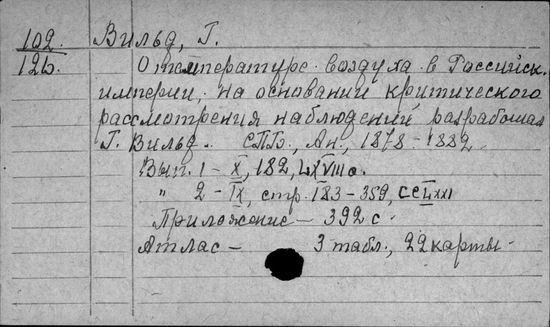 102. Вильд, Г.
12b. О температуре воздуха в Российск.
империи, на основании критического
рассмотрения наблюдений разработал
Г. Вильд. СПБ., Ан., 1878-1882.
Вып. 1 - X, 182, LXVIII с.
" 2 - IX, стр. 183-359,
Приложение - 392 с.
Атлас - 3 табл., 22 карты.